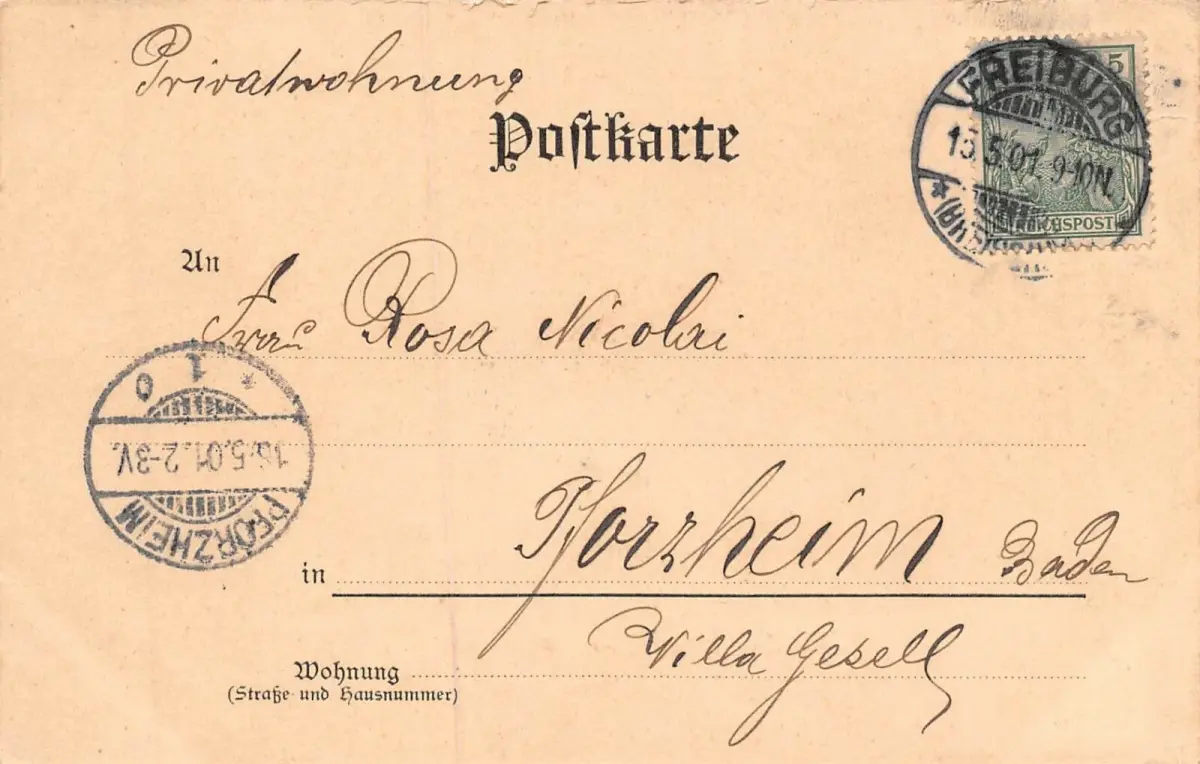 Privatwohnung
Postkarte
5
FREIBURG
5.01. 9-10N.
REICHSPOST
An
Frau Rosa Nicolai
* 1 0
16.5.01. 2-3V.
PFORZHEIM
in Pforzheim Baden
Villa Gesell
Wohnung
(Straße und Hausnummer)